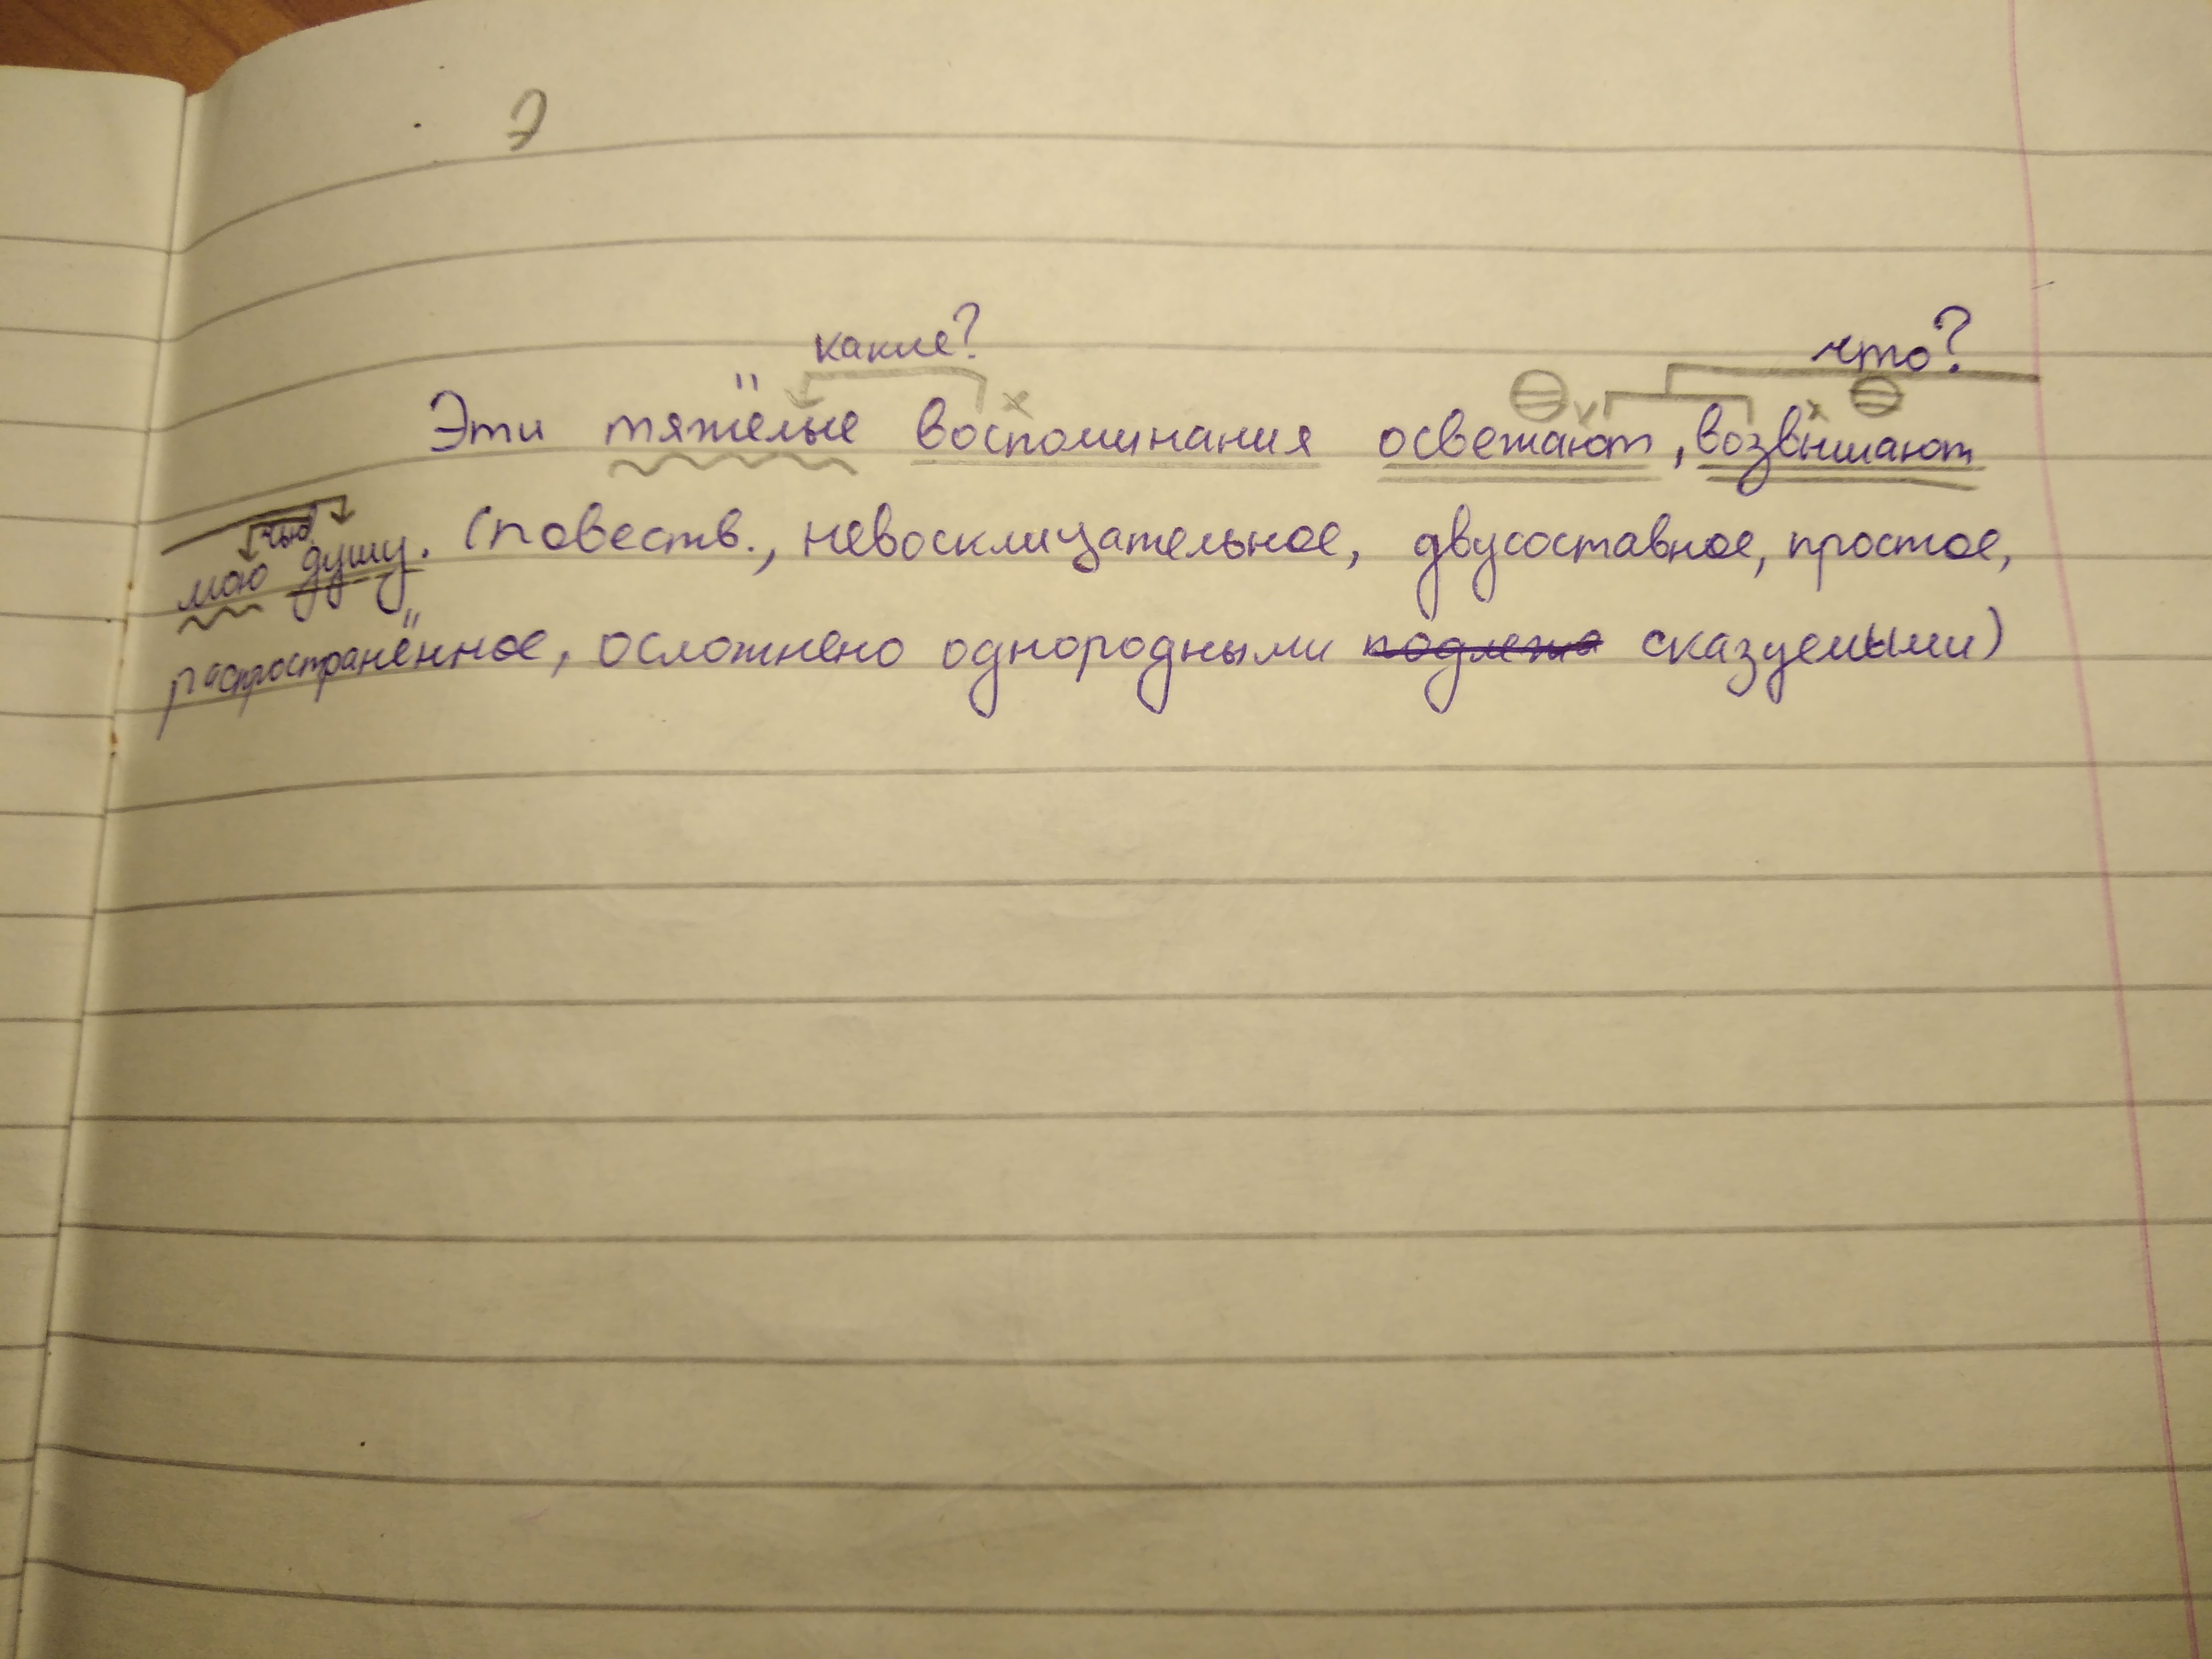 Э
какие? что?
Эти тяжёлые воспоминания освежают, возвышают
чью?
мою душу. (повеств., невосклицательное, двусоставное, простое,
распространённое, осложнено однородными подлежа сказуемыми)